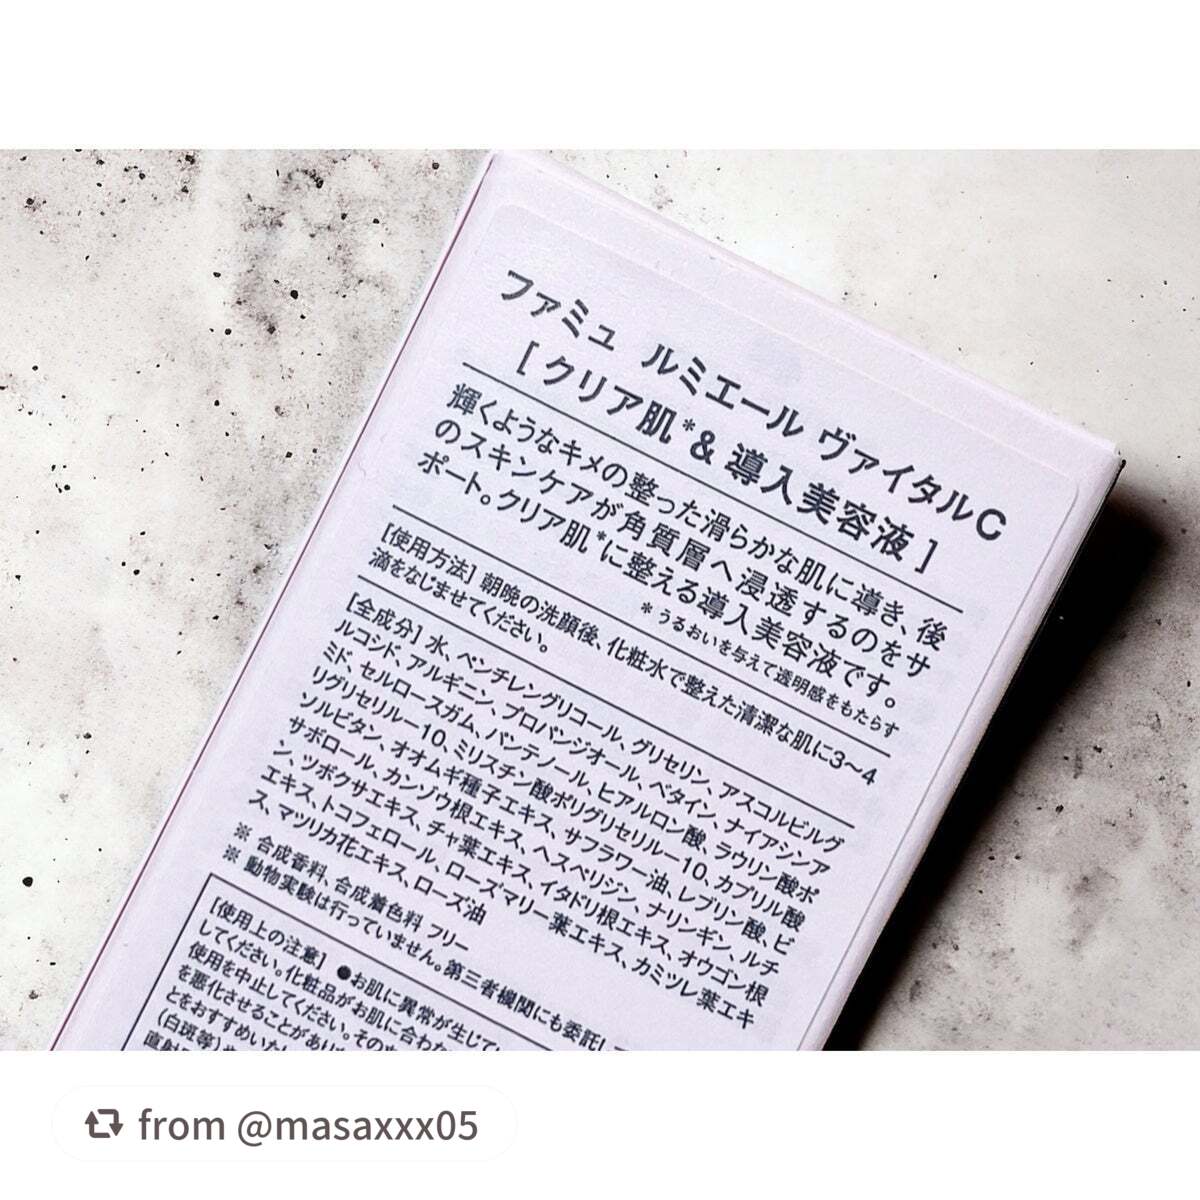 ファミュ ルミエール ヴァイタルC
[ クリア肌*& 導入美容液 ]
輝くようなキメの整った滑らかな肌に導き、後
のスキンケアが角質層へ浸透するのをサ
ポート。クリア肌*に整える導入美容液です。
* うるおいを与えて透明感をもたらす
[使用方法] 朝晩の洗顔後、化粧水で整えた清潔な肌に3〜4
滴をなじませてください。
[全成分] 水、ペンチレングリコール、グリセリン、アスコルビルグ
ルコシド、アルギニン、プロパンジオール、ベタイン、ナイアシンア
ミド、セルロースガム、パンテノール、ヒアルロン酸、ラウリン酸ポ
リグリセリルー10、ミリスチン酸ポリグリセリルー10、カプリル酸
ソルビタン、オオムギ種子エキス、サフラワー油、レブリン酸、ビ
サボロール、カンゾウ根エキス、ヘスペリジン、ナリンギン、ルチ
ン、ツボクサエキス、チャ葉エキス、イタドリ根エキス、オウゴン根
エキス、トコフェロール、ローズマリー葉エキス、カミツレ葉エキ
ス、マツリカ花エキス、ローズ油
※ 合成香料、合成着色料 フリー
※ 動物実験は行っていません。第三者機関にも委託し
[使用上の注意] ●お肌に異常が生じてい
してください。化粧品がお肌に合わな
使用を中止してください。その
を悪化させることがあり
とをおすすめいた
(白斑等)や
直射
from @masaxxx05